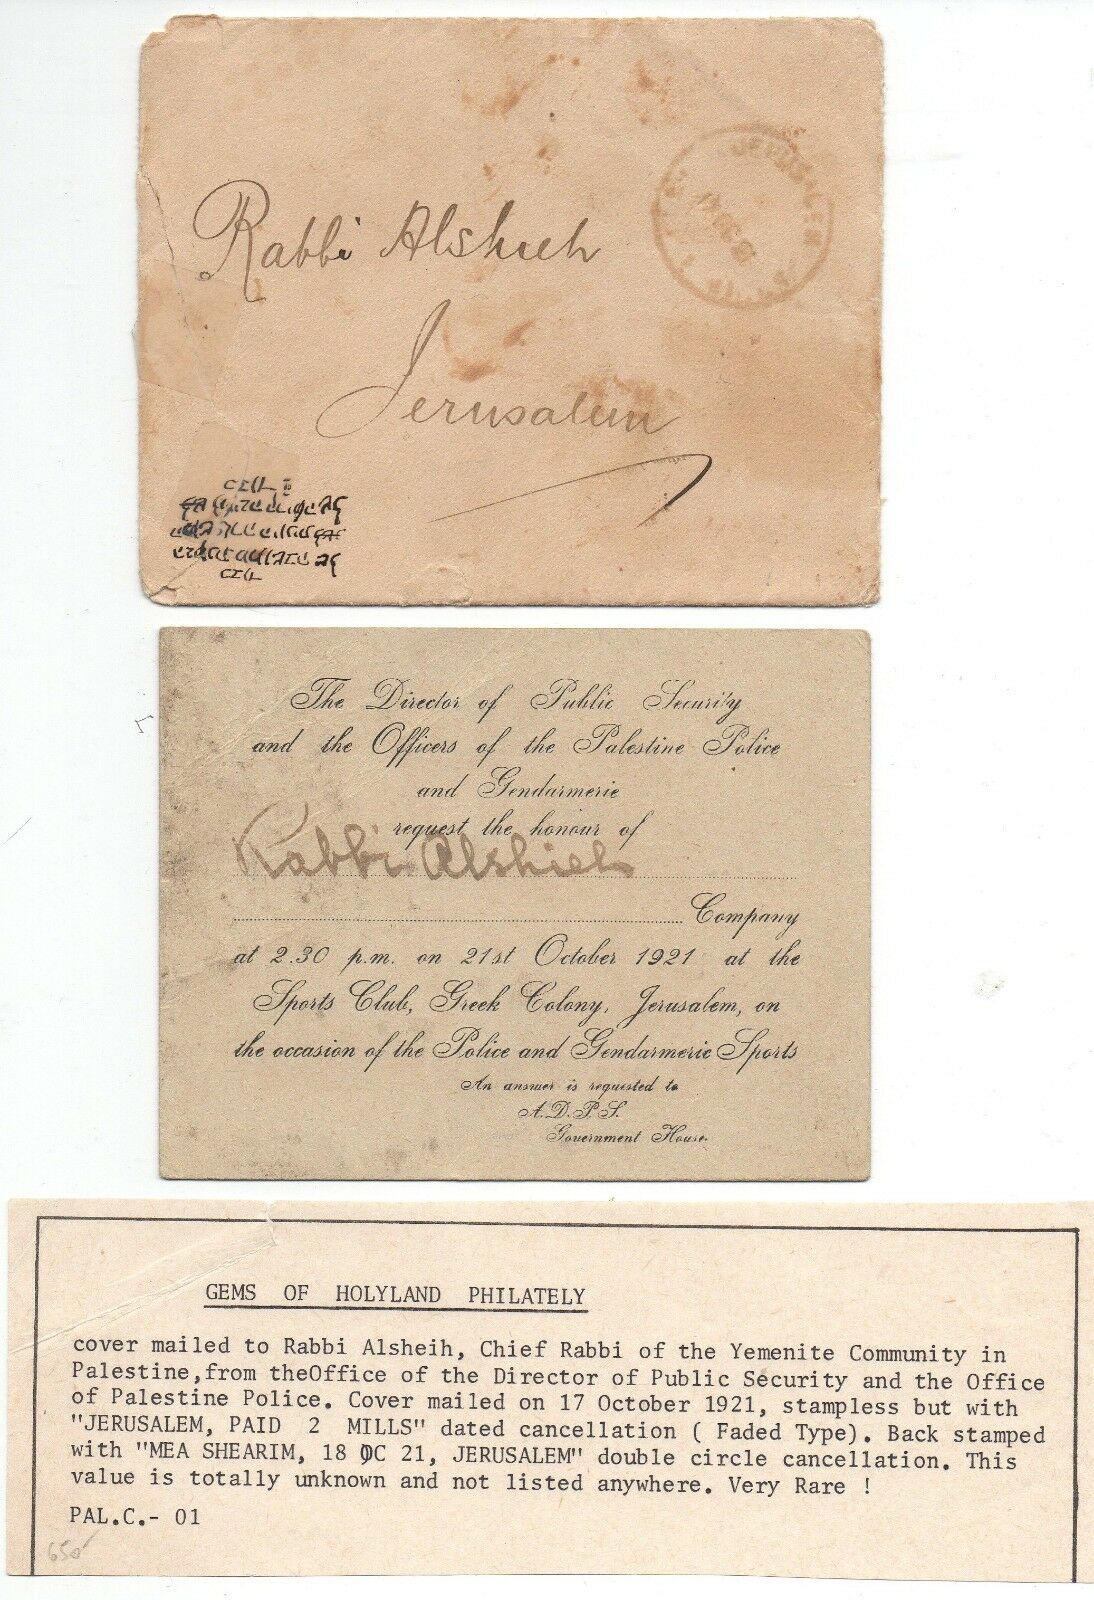 JERUSALEM
Rabbi Alshieh
Jerusalem
The Director of Public Security
and the Officers of the Palestine Police
and Gendarmerie
request the honour of
Rabbi Alshieh
Company
at 2.30 p.m. on 21st October 1921 at the
Sports Club, Greek Colony, Jerusalem, on
the occasion of the Police and Gendarmerie Sports
An answer is requested to
A.D.P.S.
Government House.
GEMS OF HOLYLAND PHILATELY
cover mailed to Rabbi Alsheih, Chief Rabbi of the Yemenite Community in
Palestine,from theOffice of the Director of Public Security and the Office
of Palestine Police. Cover mailed on 17 October 1921, stampless but with
"JERUSALEM, PAID 2 MILLS" dated cancellation ( Faded Type). Back stamped
with "MEA SHEARIM, 18 OC 21, JERUSALEM" double circle cancellation. This
value is totally unknown and not listed anywhere. Very Rare !
PAL.C.- 01
650